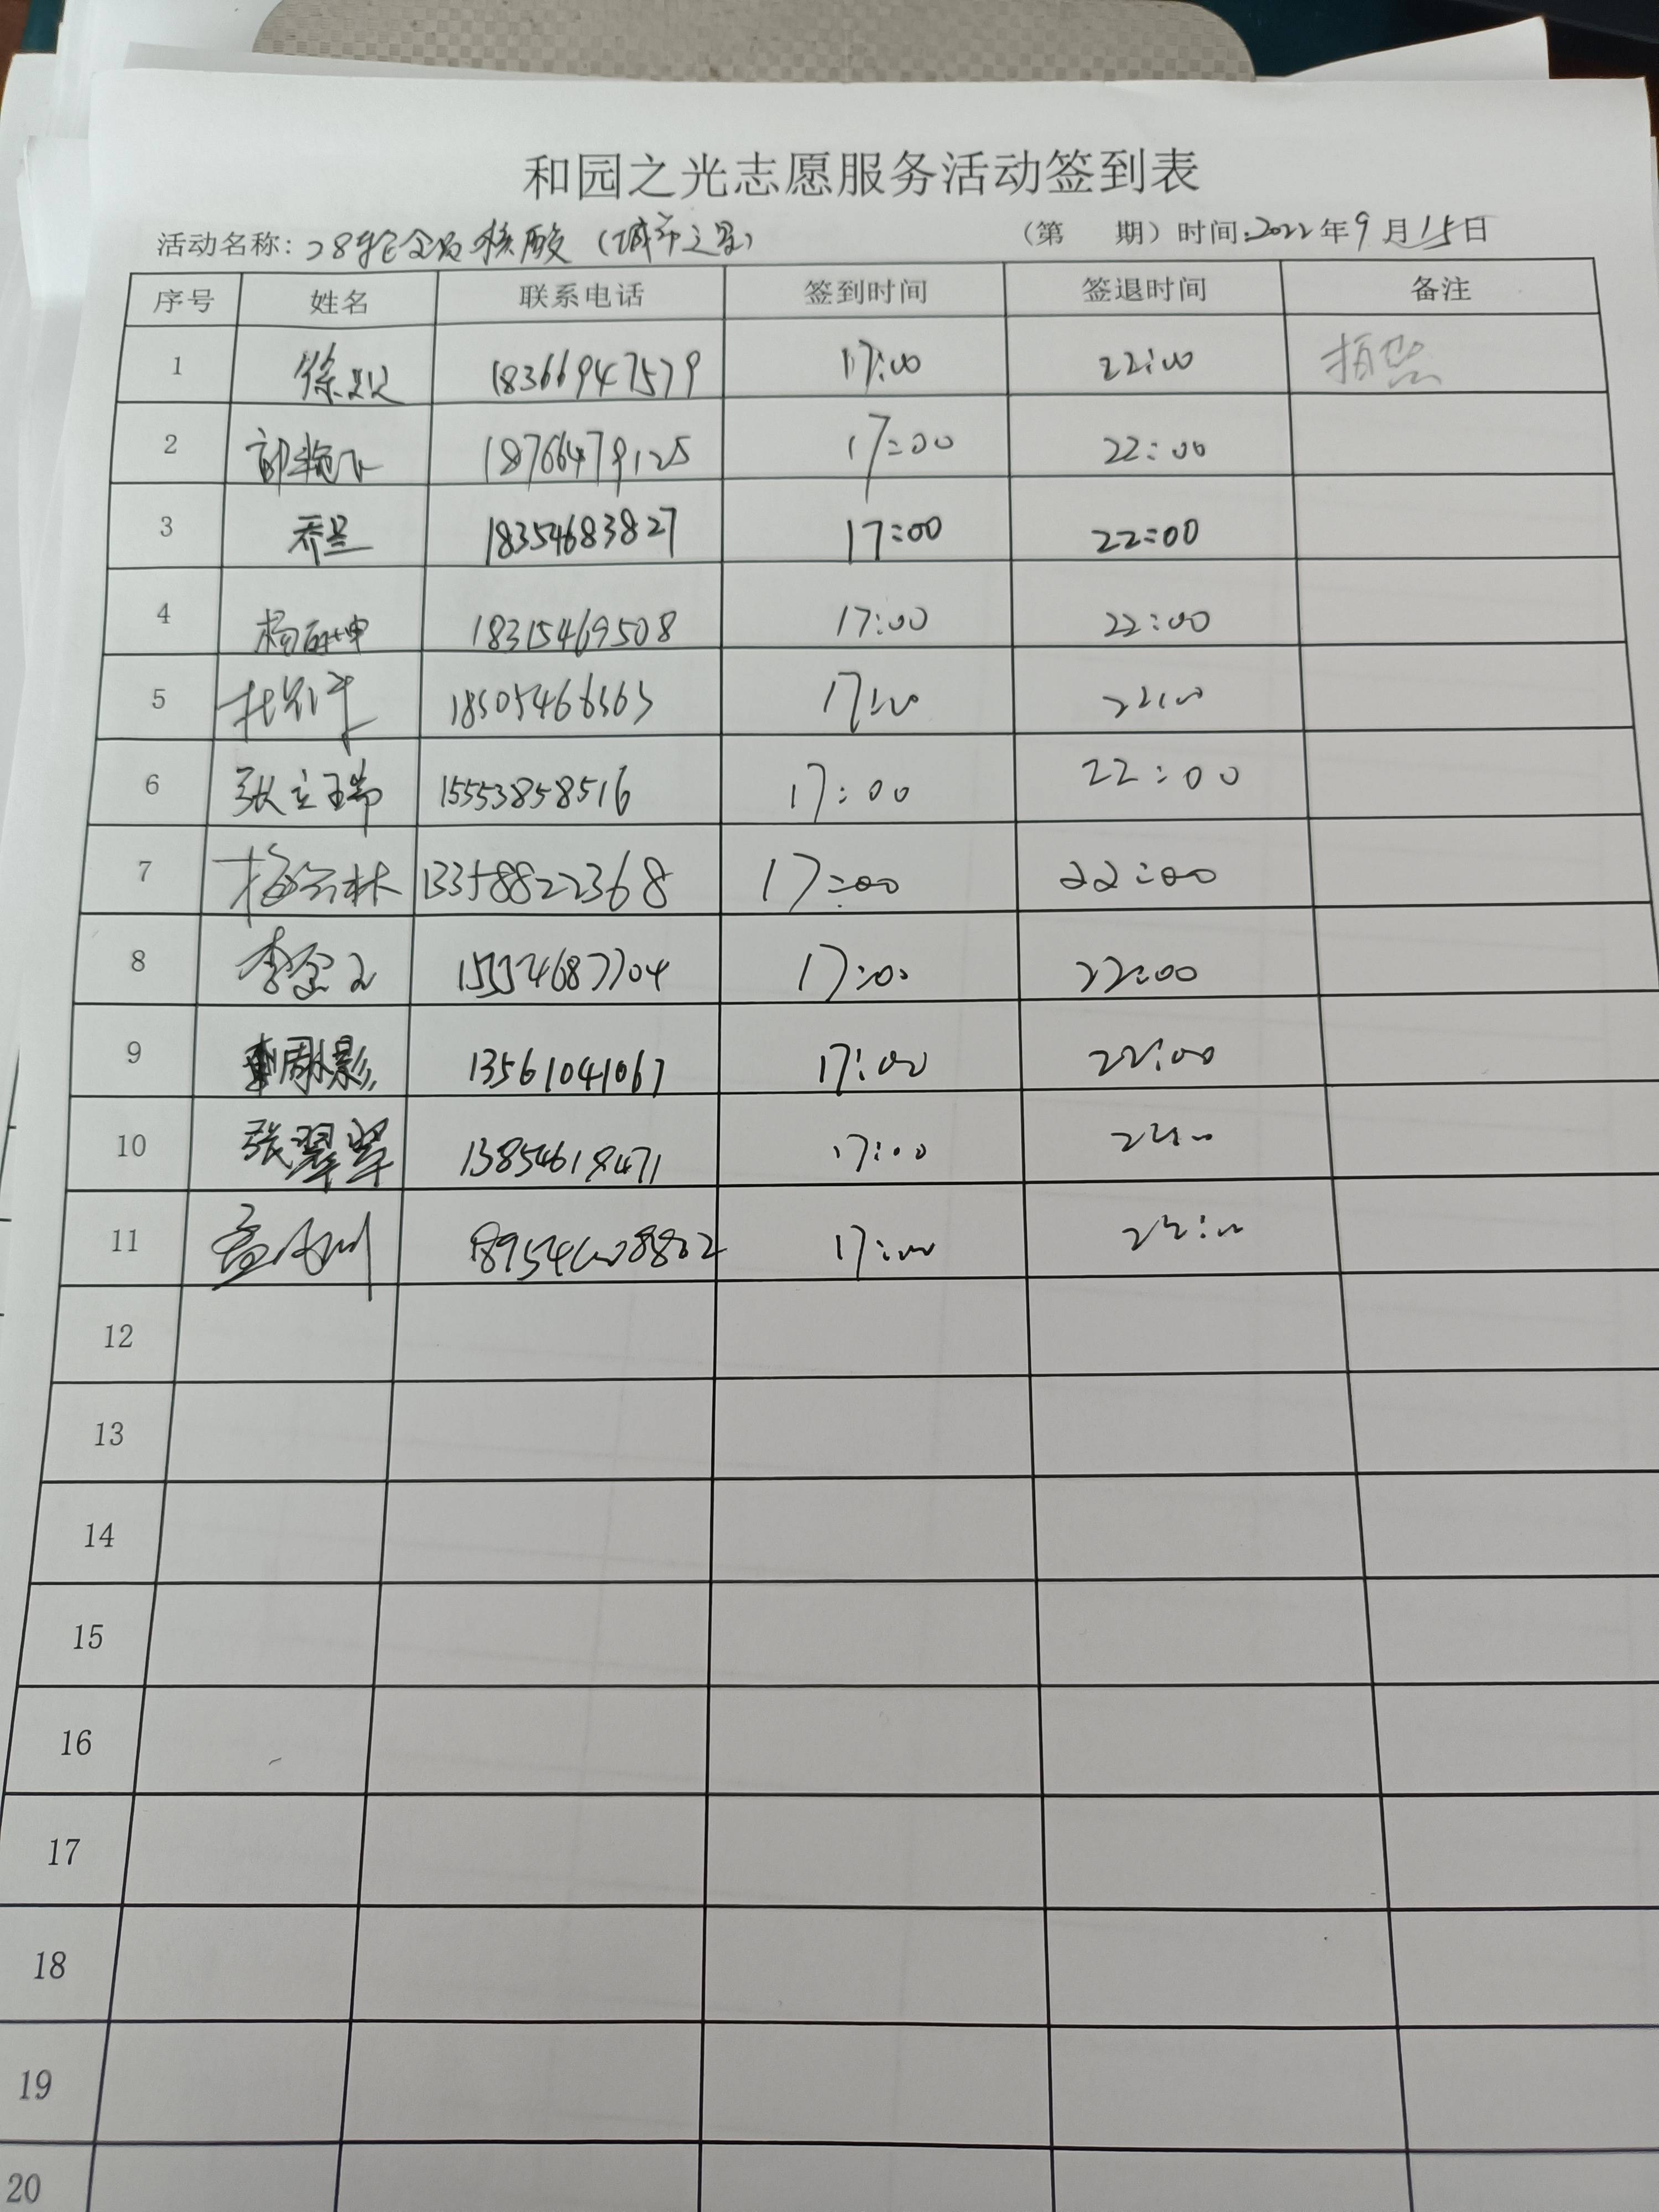 和园之光志愿服务活动签到表
活动名称: 28轮全员核酸（城市之星） （第 期）时间:2022年9月15日
序号 姓名 联系电话 签到时间 签退时间 备注
1 徐 18366947579 17:00 22:00 拍照
2 18766479125 17:00 22:00
3 乔 18354683827 17:00 22:00
4 杨 坤 18315469508 17:00 22:00
5 杜 17:00 22:00
6 张立瑞 15553858516 17:00 22:00
7 林 13358822368 17:00 22:00
8 李 15554687704 17:00 22:00
9 周小影 13561041067 17:00 22:00
10 张翠翠 13854618471 17:00 22:00
11 孟 17:00 22:00
12
13
14
15
16
17
18
19
20